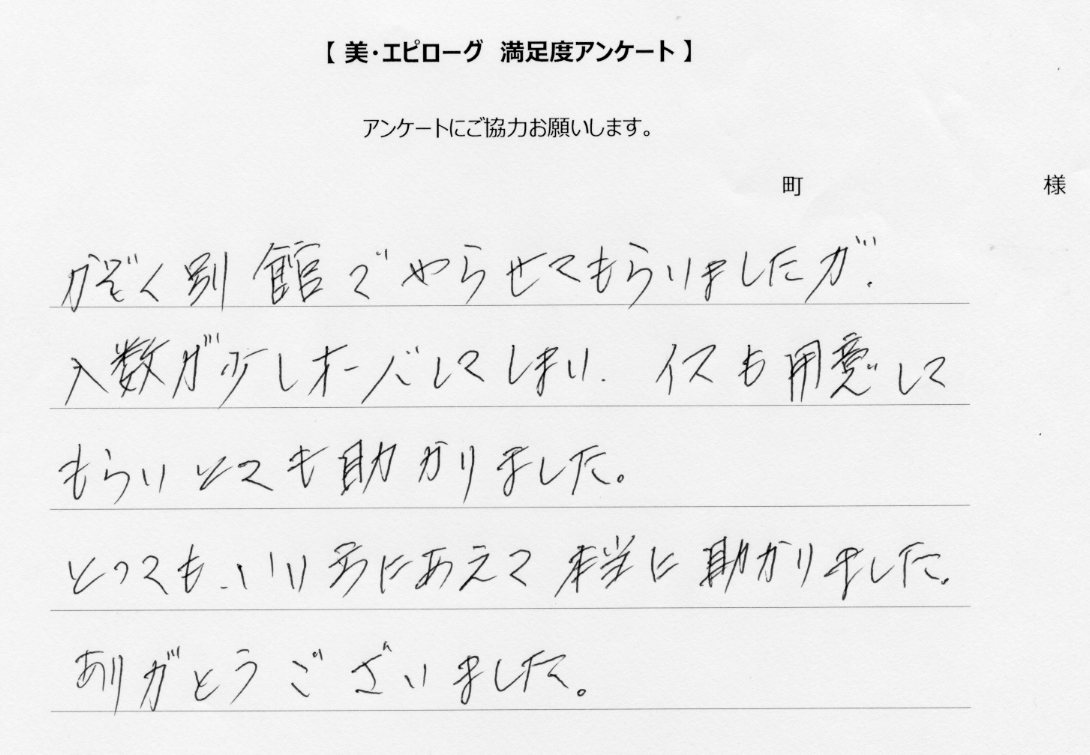 【 美・エピローグ 満足度アンケート 】
アンケートにご協力お願いします。
町 様
かぞく別館でやらせてもらいましたが、
人数が少しオーバしてしまい、イスも用意して
もらいとても助かりました。
とっても、いい方にあえて本当に助かりました。
ありがとうございました。